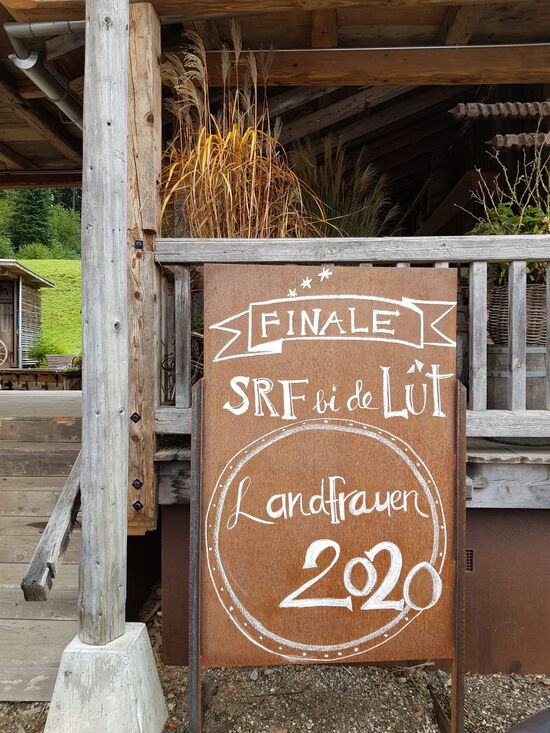 FINALE
SRF bi de LÛT
Landfrauen
2020